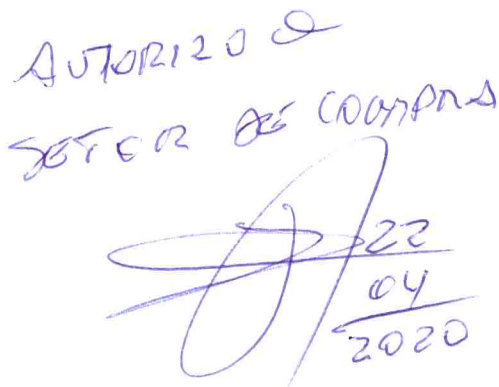 AUTORIZO O
SETER DE COOMPRA
22
04
2020